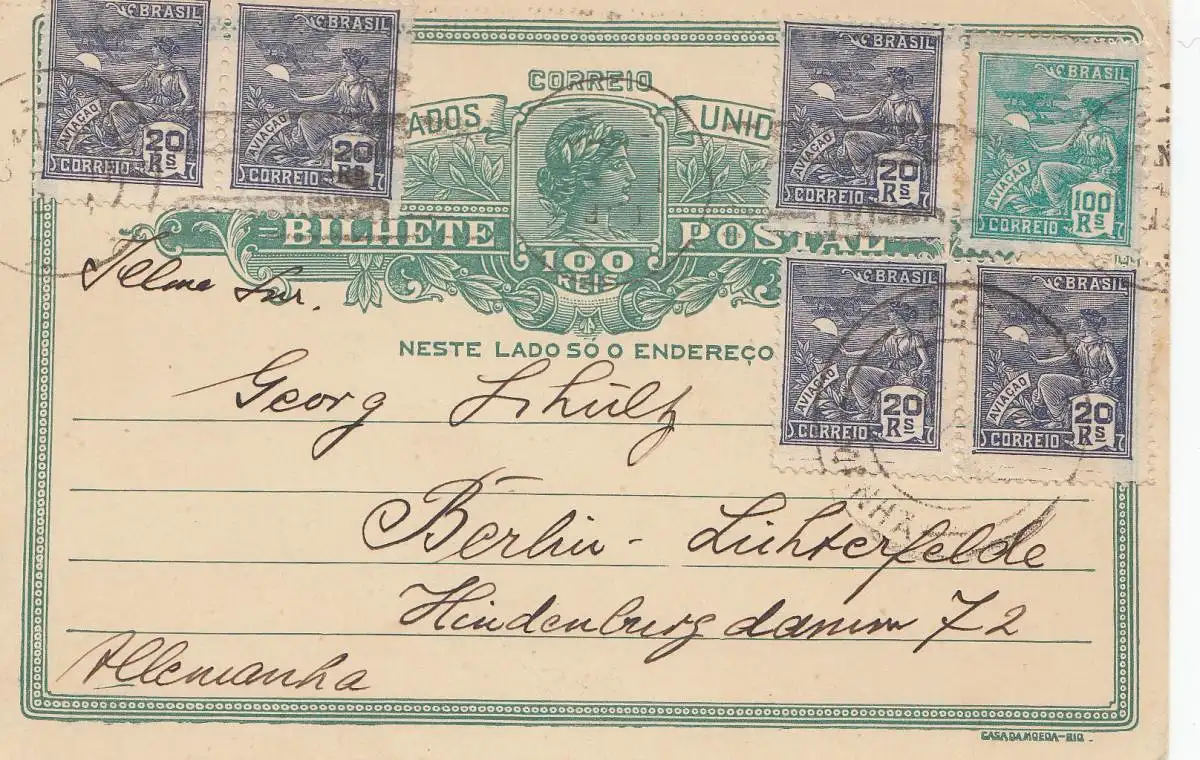 BRASIL
AVIAÇÃO
20 Rs
CORREIO
BRASIL
AVIAÇÃO
20 Rs
CORREIO
CORREIO
ADOS UNID
BRASIL
AVIAÇÃO
20 Rs
CORREIO
BRASIL
AVIAÇÃO
100 Rs
CORREIO
BILHETE POSTAL
100
REIS
NESTE LADO SÓ O ENDEREÇO
BRASIL
AVIAÇÃO
20 Rs
CORREIO
BRASIL
AVIAÇÃO
20 Rs
CORREIO
Georg Schültz
Berlin - Lichterfelde
Hindenburgdamm 72
Allemanha
CASA DA MOEDA-RIO